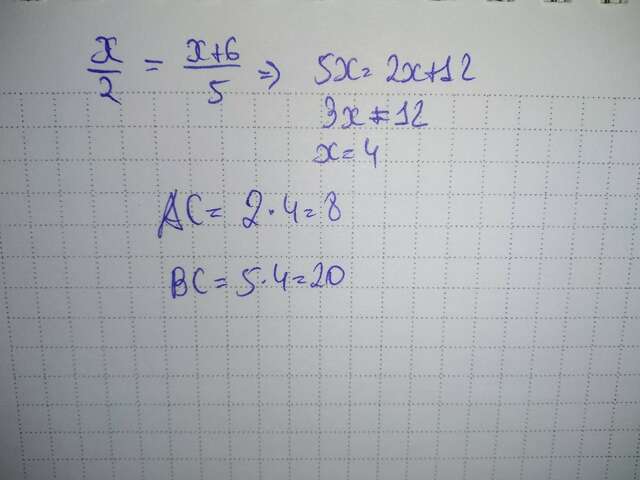 x/2 = x+6/5 => 5x = 2x+12
3x = 12
x = 4
AC = 2·4 = 8
BC = 5·4 = 20